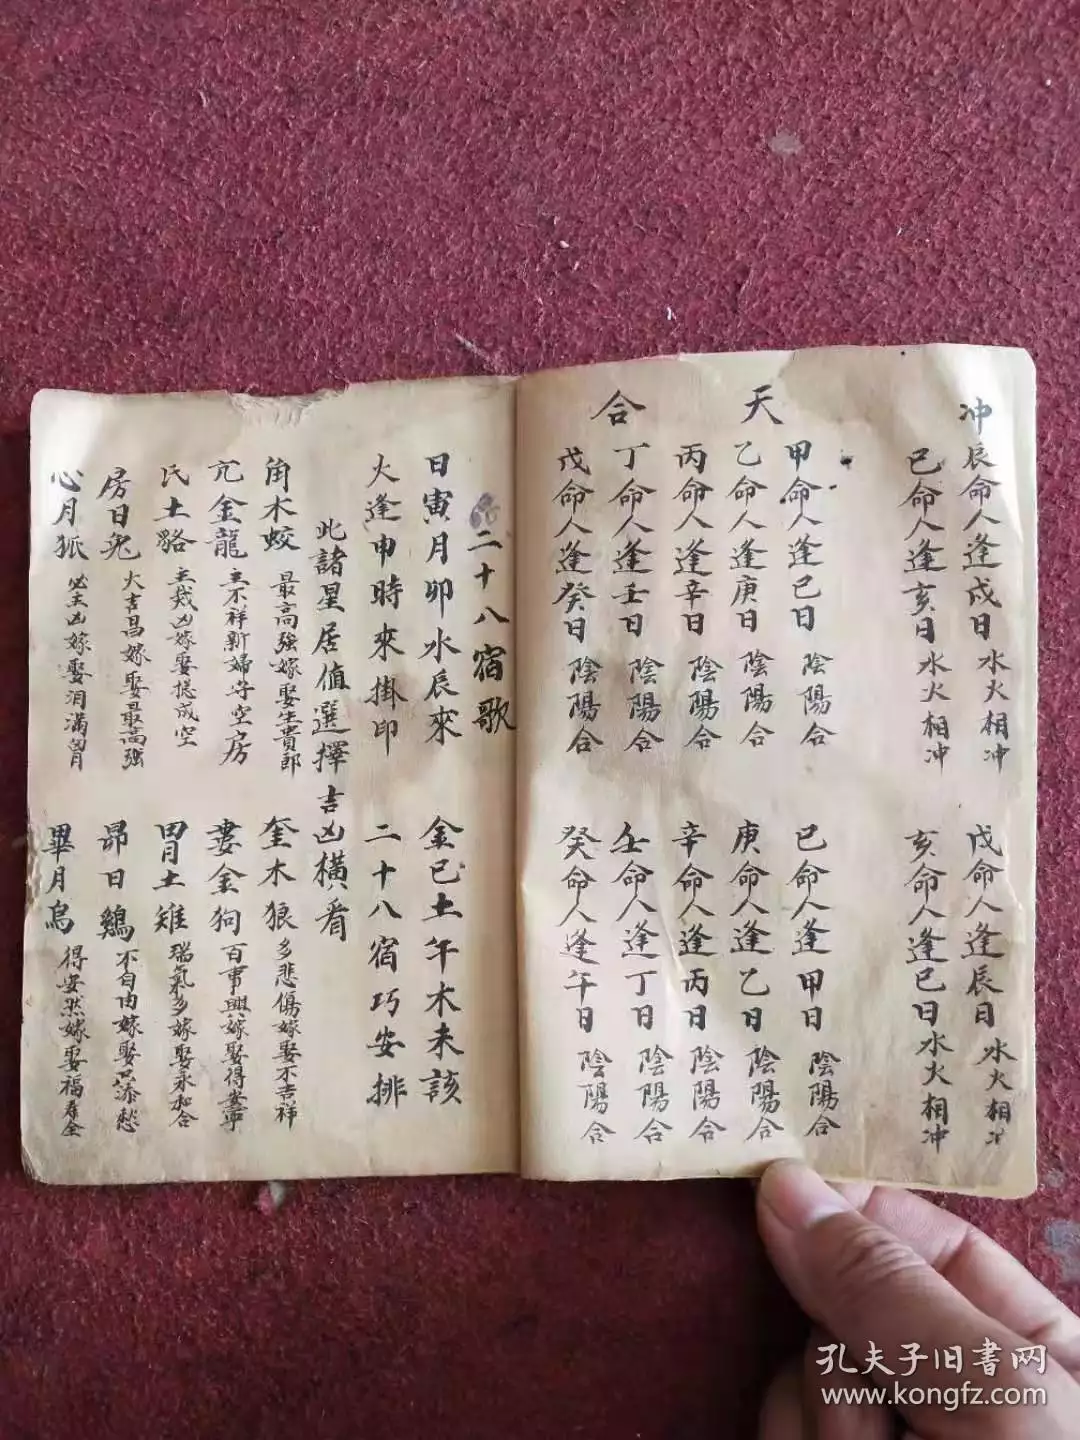 冲
辰命人逢戍日 水火相冲
戊命人逢辰日 水火相冲
巳命人逢亥日 水火相冲
亥命人逢巳日 水火相冲
天合
甲命人逢己日 陰陽合
巳命人逢甲日 陰陽合
乙命人逢庚日 陰陽合
庚命人逢乙日 陰陽合
丙命人逢辛日 陰陽合
辛命人逢丙日 陰陽合
丁命人逢壬日 陰陽合
壬命人逢丁日 陰陽合
戊命人逢癸日 陰陽合
癸命人逢午日 陰陽合
二十八宿歌
日寅月卯水辰來 金巳土午木未該
火逢申時來掛印 二十八宿巧安排
此諸星居值選擇吉凶橫看
角木蛟 最高強嫁娶生貴郎
奎木狼 多悲傷嫁娶不吉祥
亢金龍 主不祥新婦守空房
婁金狗 百事興嫁娶得安寧
氐土駱 主残凶嫁娶總成空
胃土雉 瑞氣多嫁娶永和合
房日兔 大吉昌嫁娶最高強
昴日鷄 不自由嫁娶只添愁
心月狐 必主凶嫁娶泪滿胷
畢月烏 得安然嫁娶福壽全
孔夫子旧書网
www.kongfz.com